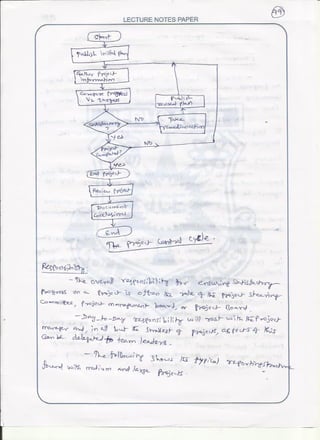 49
LECTURE NOTES PAPER
Start
Publish initial plan
Gather project
information
Compare progress
Vs targets
Satisfactory
?
NO
Take
remedial action
Publish
revised plan
Yes
Project
Completed?
NO
Yes
End project
Review project
Document
Conclusions
End
The project Control cycle.
Responsibility:
- The overall responsibility for ensuring satisfactory
progress on a project is often the role of the project steering
Committee, project management board, or project Board.
- Day-to-Day responsibility will rest with the project
manager and, in all but the smallest of projects, aspects of this
can be delegated to team leaders.
- The following shows the typical reporting structure
found with medium and large projects.